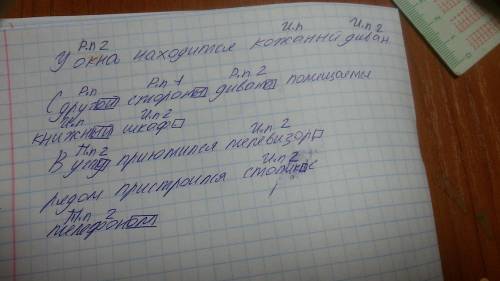 Р.п 2 И.п И.п 2
У окна находится кожанный диван.
Р.п Р.п 1 Р.п 2
С другой стороны дивана помещается
И.п И.п 2
книжный шкаф
П.п 2 И.п 2
В углу приютился телевизор
И.п 2
рядом пристроился столик с
Т.п 2
телефоном